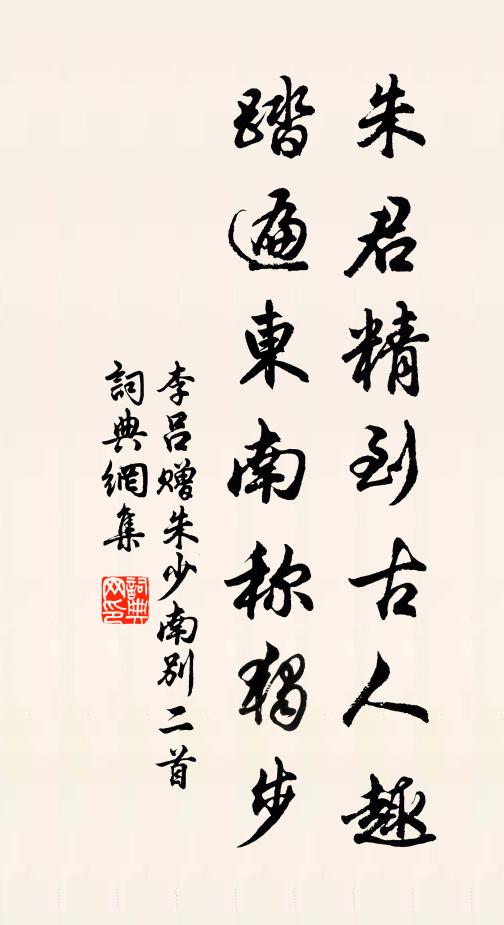 朱君精到古人趣
踏遍東南称獨步
李吕贈朱少南别二首
詞典網集
詞典網印